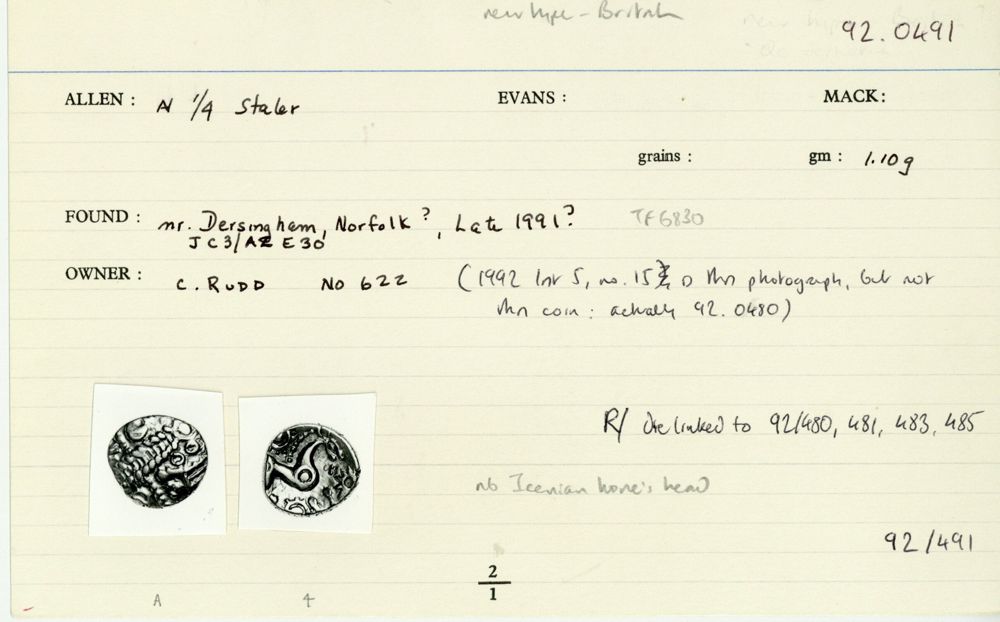 new type - British
92.0491
ALLEN : AV 1/4 Stater EVANS : MACK:
grains : gm : 1.10g
FOUND : nr. Dersingham, Norfolk?, Late 1991? TF6830
JC3/AZ E30
OWNER : C. RUDD NO 622 (1992 Inv 5, no. 15 is this photograph, but not
this coin : actually 92.0480)
R/ die linked to 92/480, 481, 483, 485
nb Icenian horse's head
92/491
2
1
A 4